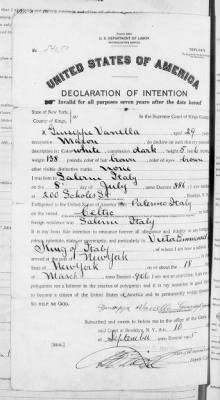 U. S. DEPARTMENT OF LABOR
NATURALIZATION SERVICE
UNITED STATES OF AMERICA
DECLARATION OF INTENTION
Invalid for all purposes seven years after the date hereof
State of New York,
County of Kings,
In the Supreme Court of Kings County
I, Giuseppe Vanella, aged 29 years,
occupation Mason, do declare on oath that my personal
description is: Color white, complexion dark, height 5 feet
weight 138 pounds, color of hair brown, color of eyes brown
other visible distinctive marks None
I was born in Salemi Italy
on the 8 day of July, anno Domini 188; I now reside
at 200 Scholes St, Brooklyn, N. Y.
I emigrated to the United States of America from Palermo Italy
on the vessel Celtic; my last
foreign residence was Salemi Italy
It is my bona fide intention to renounce forever all allegiance and fidelity to any foreign
prince, potentate, state, or sovereignty, and particularly to Victor Emmanuel
King of Italy, of whom I am now a subject; I
arrived at the port of New York, in the
State of New York, on or about the 18 day
of March, anno Domini 190; I am not an anarchist; I am not a
polygamist nor a believer in the practice of polygamy; and it is my intention in good faith
to become a citizen of the United States of America and to permanently reside therein:
SO HELP ME GOD.
Giuseppe Vanella
Subscribed and sworn to before me in the office of the Clerk of
said Court at Brooklyn, N. Y., this 10 day
of September, anno Domini 191
[SEAL]